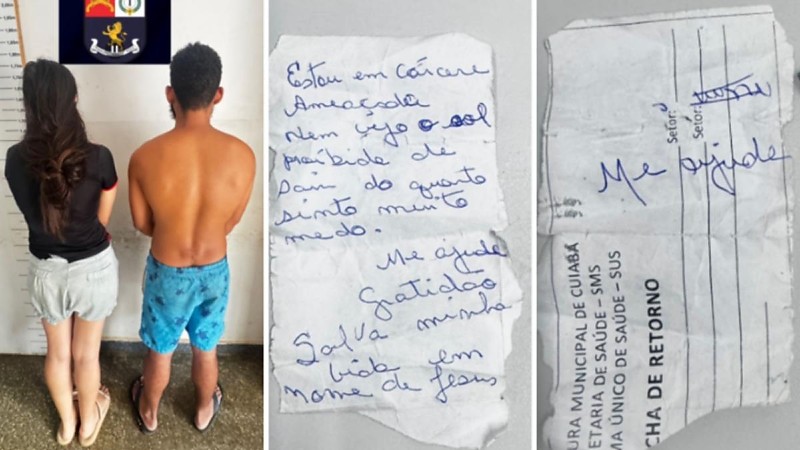 Estou em cárcere
Ameaçada
Nem vejo o sol
proibida de
sair do quarto
sinto muito
medo.
Me ajude
Gratidão
Salva minha
vida em
nome de Jesus
Me ajude
Setor:
Setor:
URA MUNICIPAL DE CUIABÁ
ETARIA DE SAÚDE – SMS
MA ÚNICO DE SAÚDE – SUS
CHA DE RETORNO